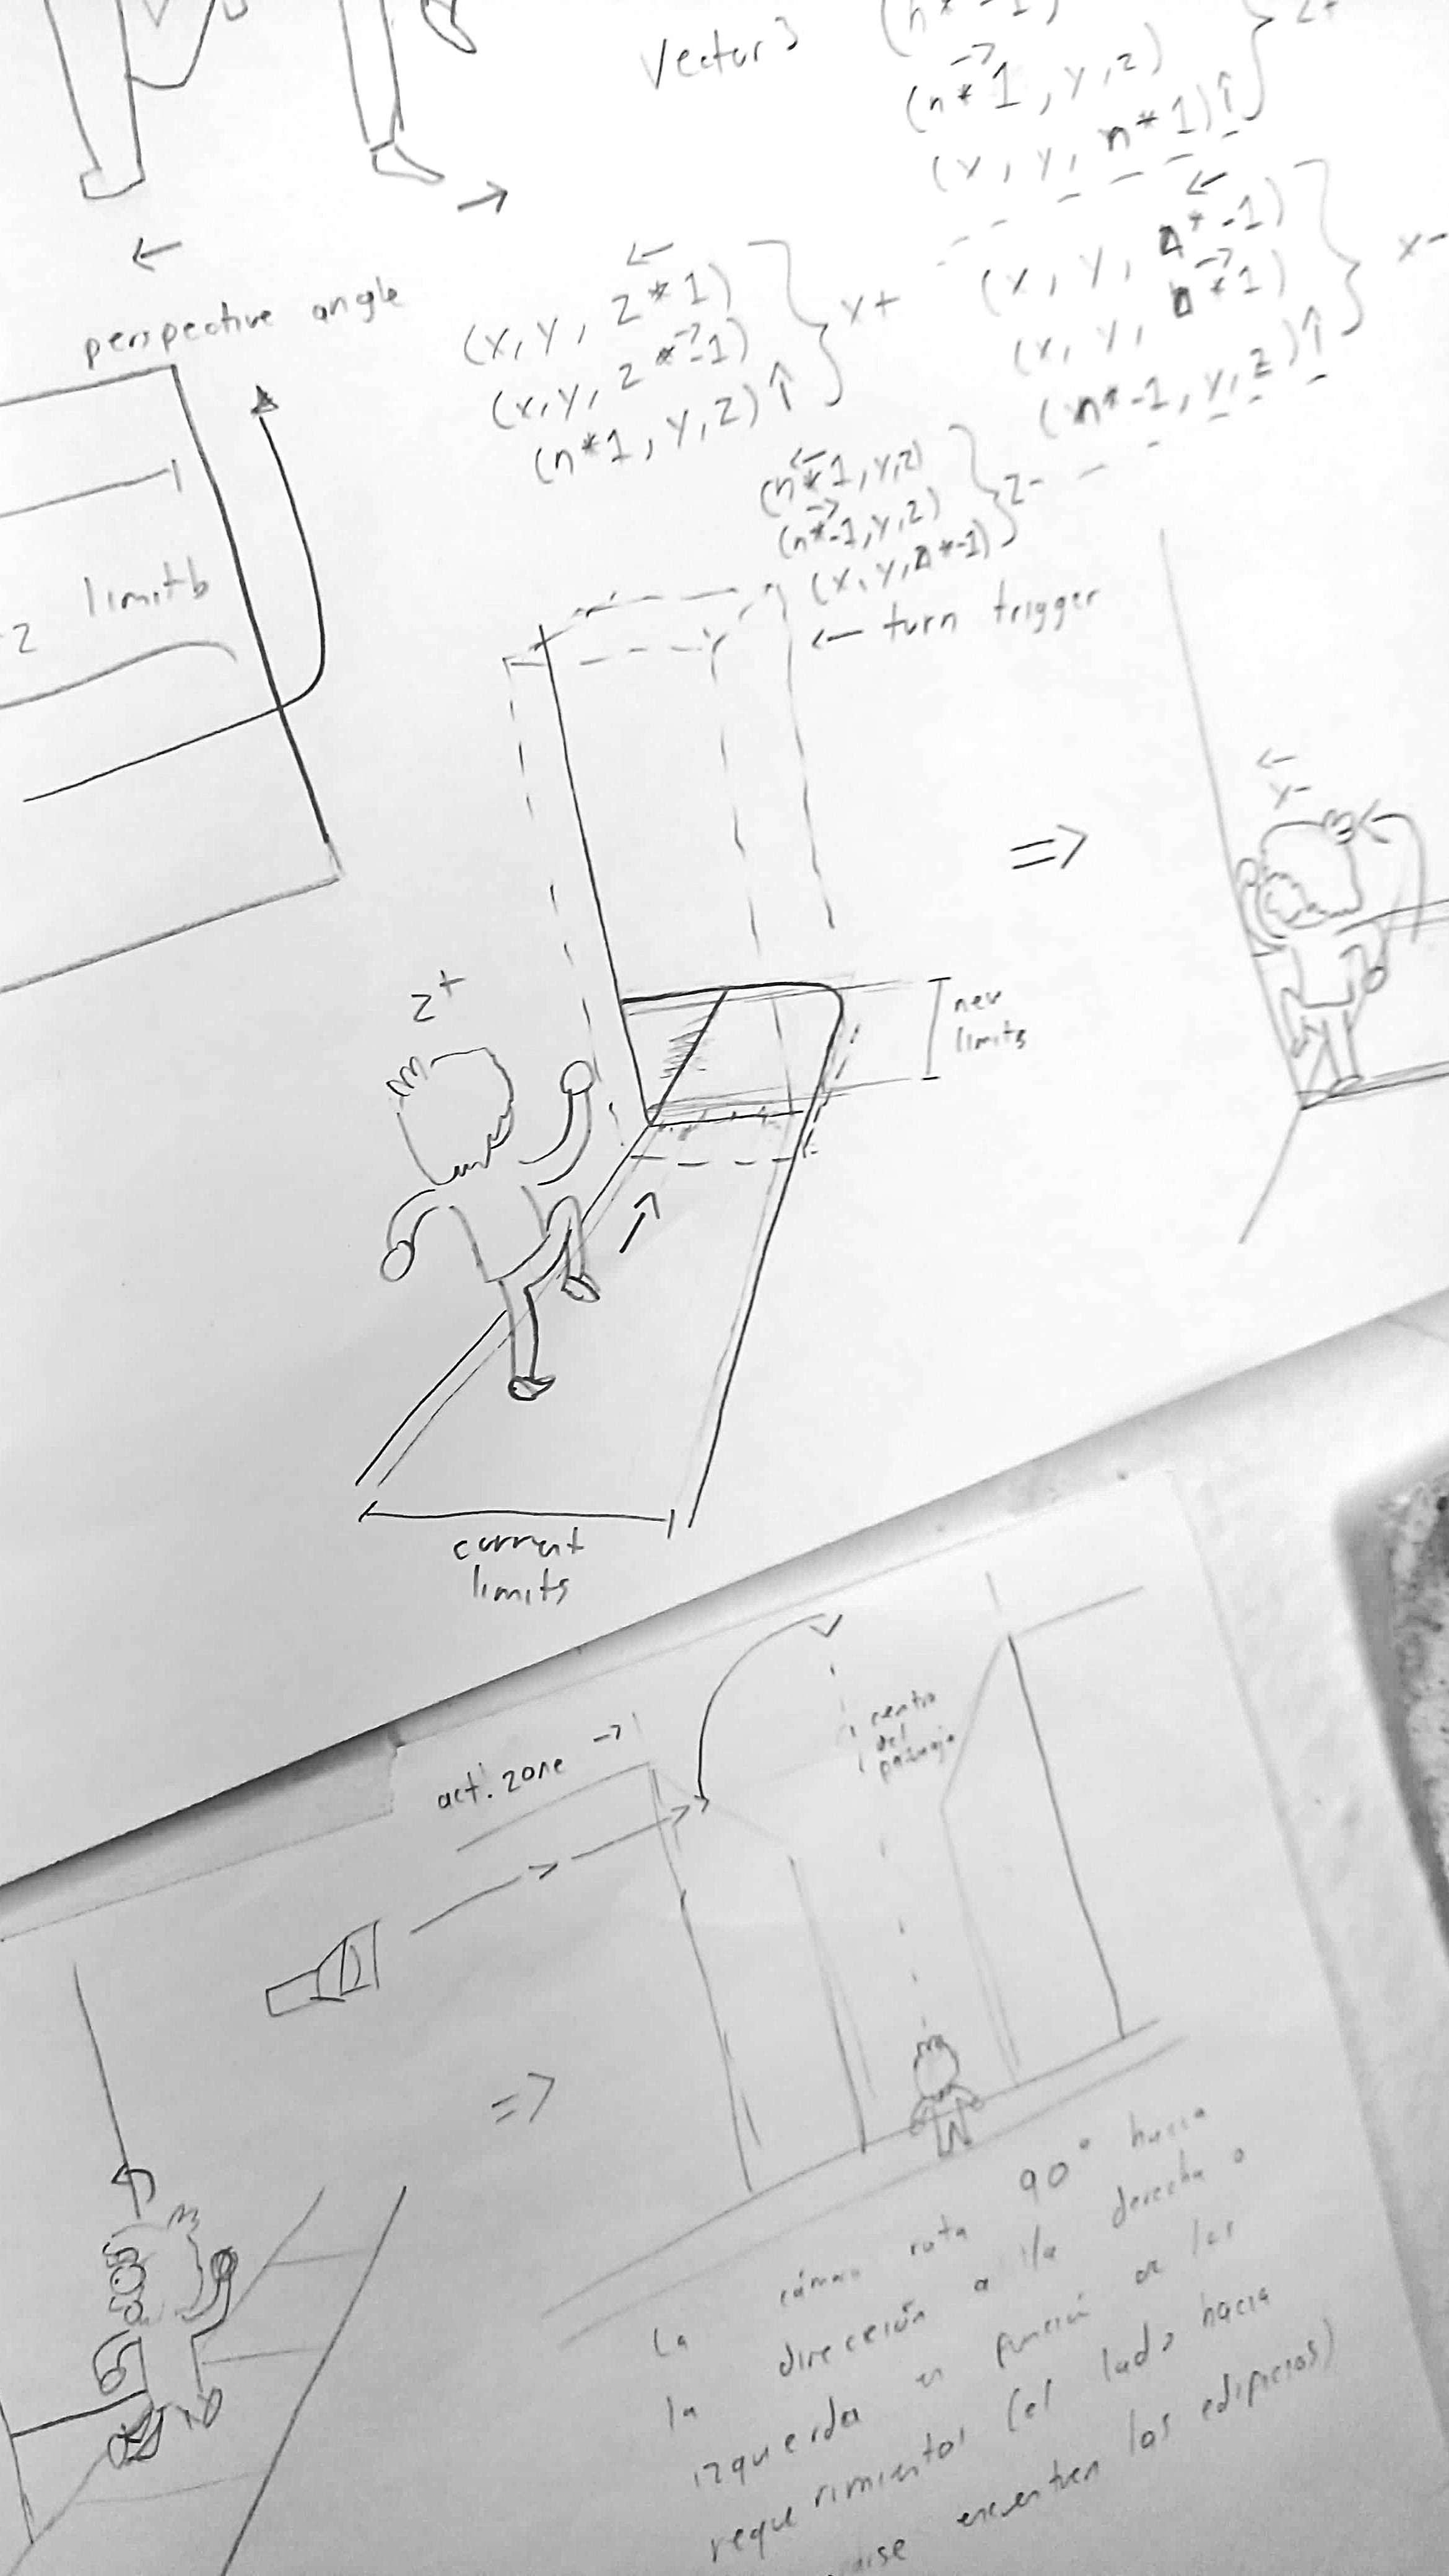 Vector3
(n*-1,
} z+
(n*1, y, z) →
(x, y, n*1)↑
←
→
perspective angle
(x, y, z*1) ←
(x, y, z*-1) →
(n*1, y, z)↑
} x+
(x, y, n*-1) ←
(x, y, n*1) →
(n*-1, y, z)↑
} x-
(n*1, y, z) ←
(n*-1, y, z) →
(x, y, n*-1)
} z-
limitb
2
← turn trigger
=>
←
x-
z+
new
limits
current
limits
act. zone →
centro
del
=>
La cámara rota 90° hacia
la dirección a la derecha o
izquierda en función de los
requerimientos (el lado hacia
encuentren los edificios)